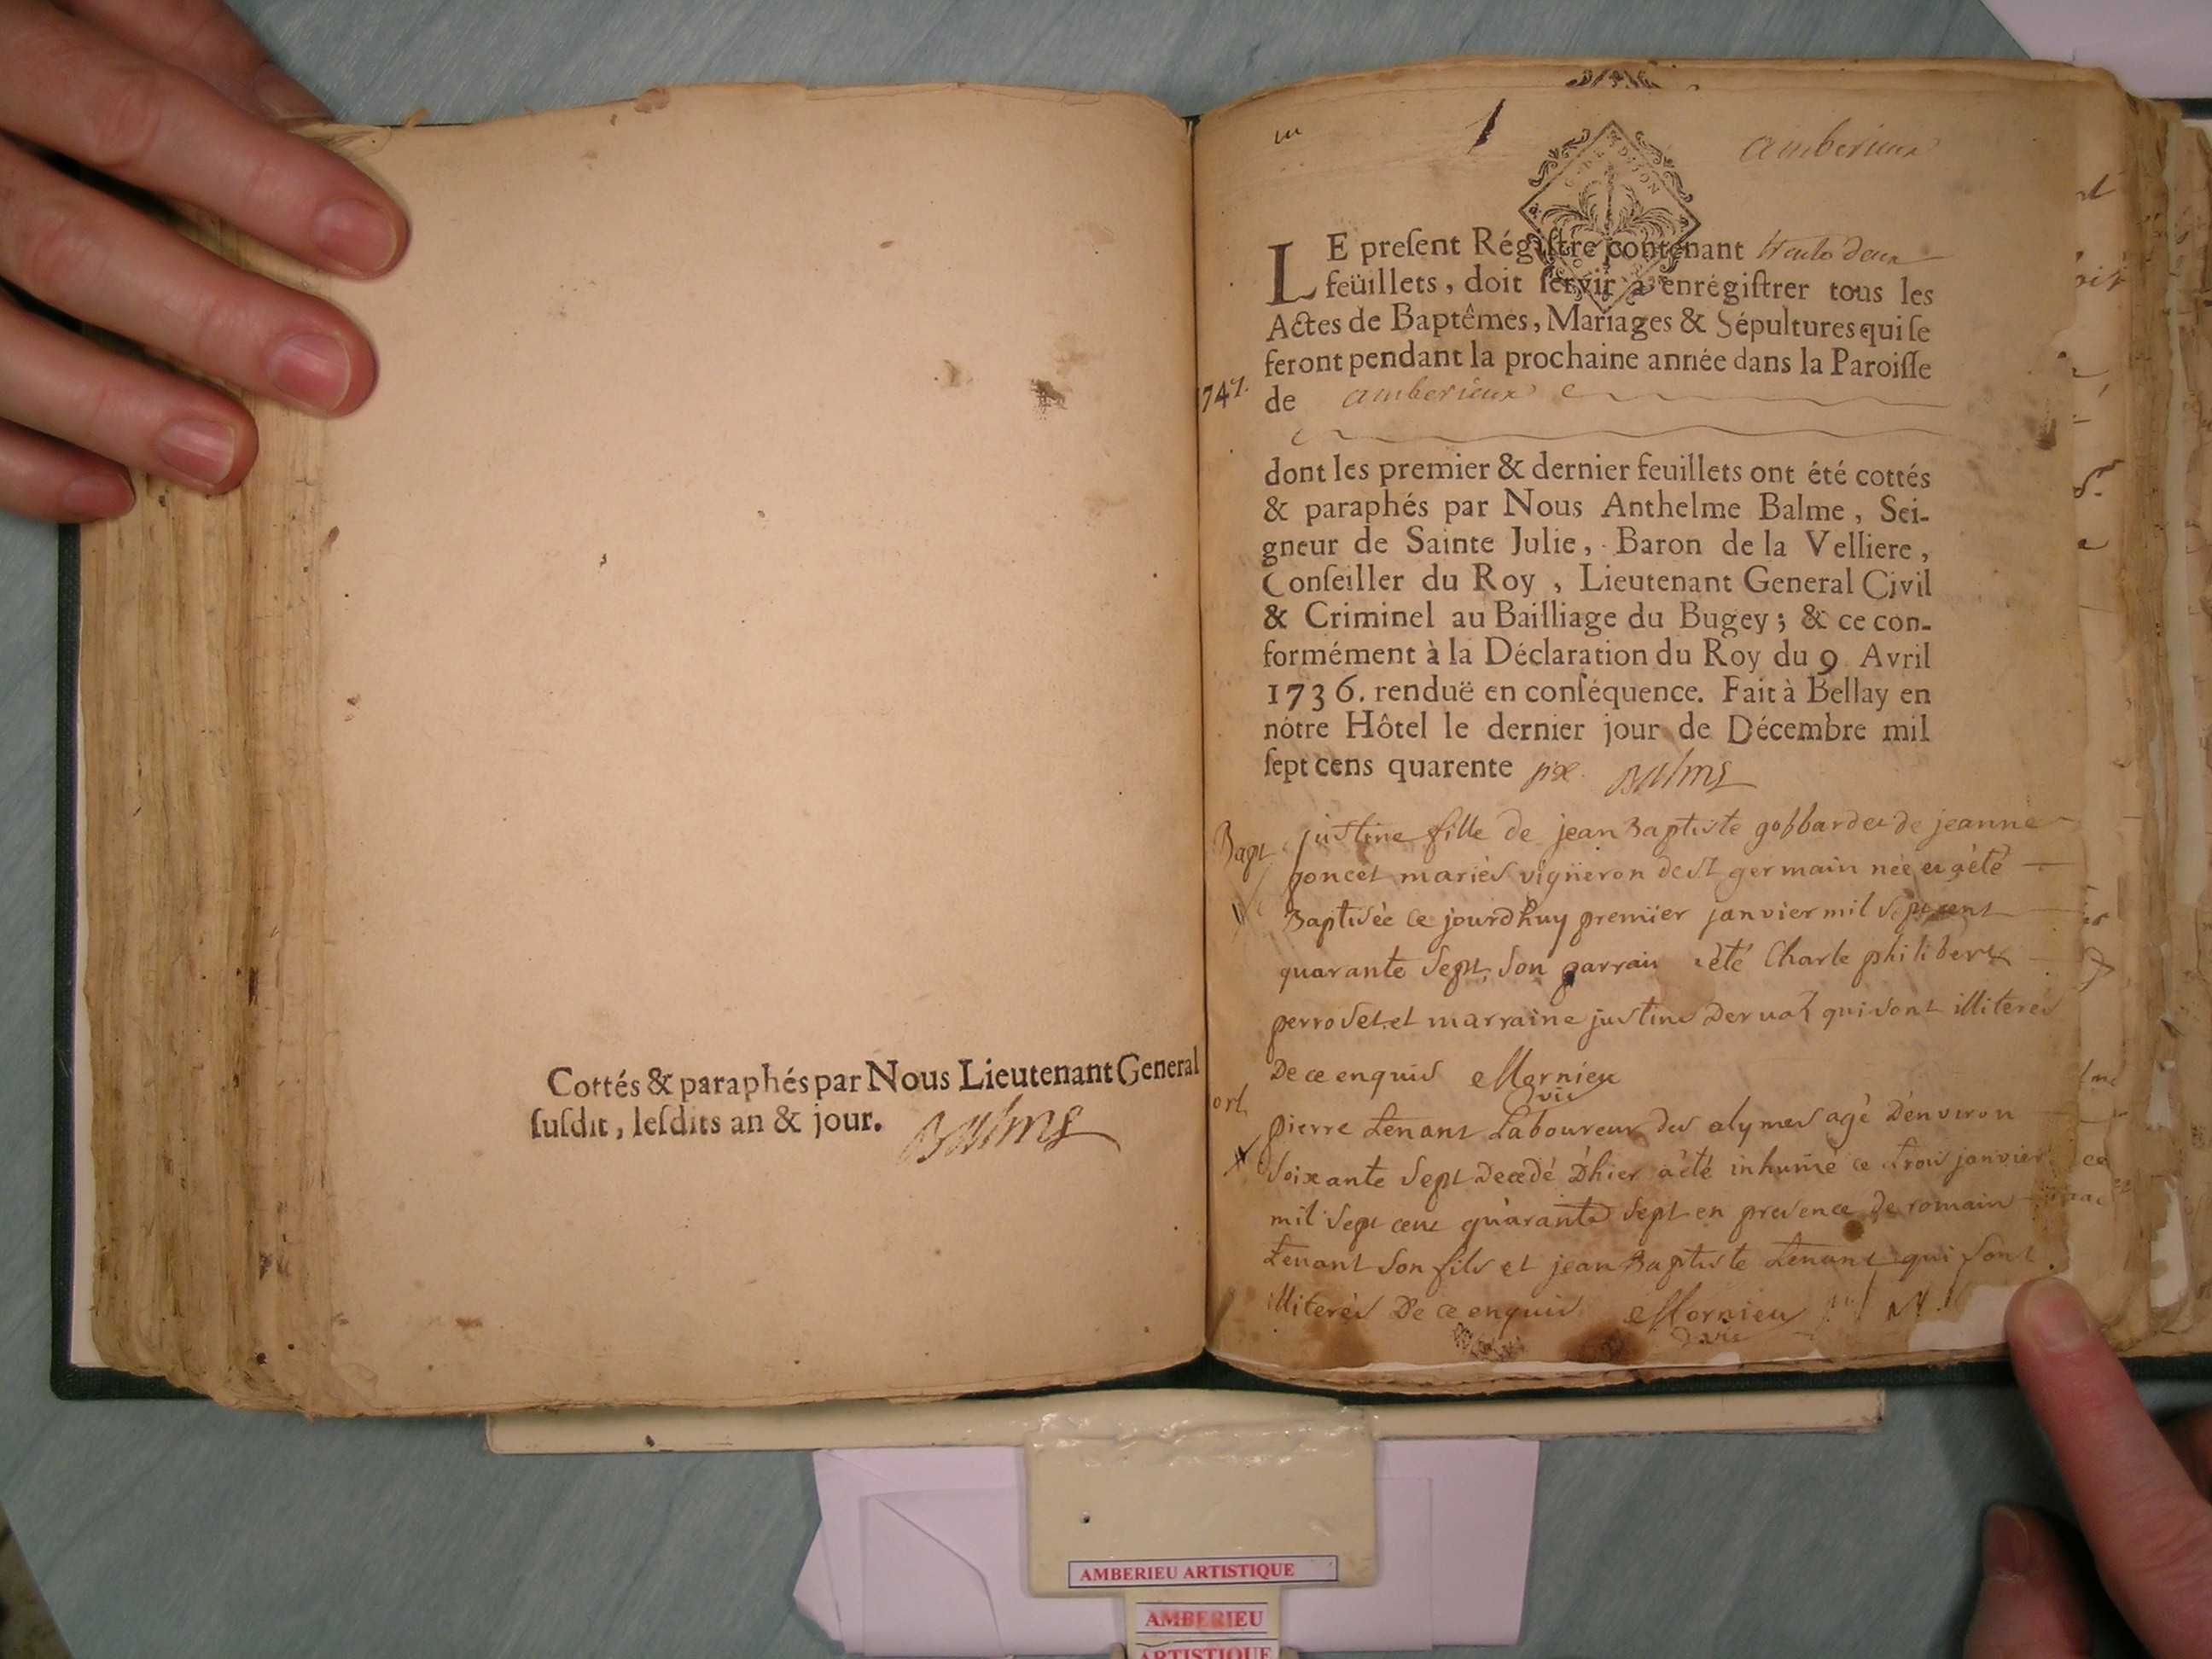 Cottés & paraphés par Nous Lieutenant General
ſuſdit, leſdits an & jour. Balme
1 amberieux
LE preſent Régiſtre contenant trente deux
feüillets, doit ſervir à enrégiſtrer tous les
Actes de Baptêmes, Mariages & Sépultures qui ſe
feront pendant la prochaine année dans la Paroiſſe
1747. de amberieux
dont les premier & dernier feuillets ont été cottés
& paraphés par Nous Anthelme Balme, Sei-
gneur de Sainte Julie, Baron de la Velliere,
Conſeiller du Roy, Lieutenant General Civil
& Criminel au Bailliage du Bugey; & ce con-
formément à la Déclaration du Roy du 9 Avril
1736. renduë en conſéquence. Fait à Bellay en
nôtre Hôtel le dernier jour de Décembre mil
ſept cens quarente six Balme
Bapt justine fille de jean Baptiste gobbard et de jeanne
poncet mariés vigneron de st germain née et a été
Baptisée ce jourdhuy premier janvier mil sept cent
quarante sept, son parrain été Charle philibert
perroset et marraine justine qui sont illiteres
De ce enquis Mornieu
vic
ort pierre Tenant Laboureur des alymes agé D'environ
soixante sept Decedé D'hier a été inhumé ce trois janvier
mil sept cent quarante sept en presence de romain
Tenant son fils et jean Baptiste Tenant qui sont
illiterés De ce enquis Mornieu
vic
AMBERIEU ARTISTIQUE
AMBERIEU
ARTISTIQUE